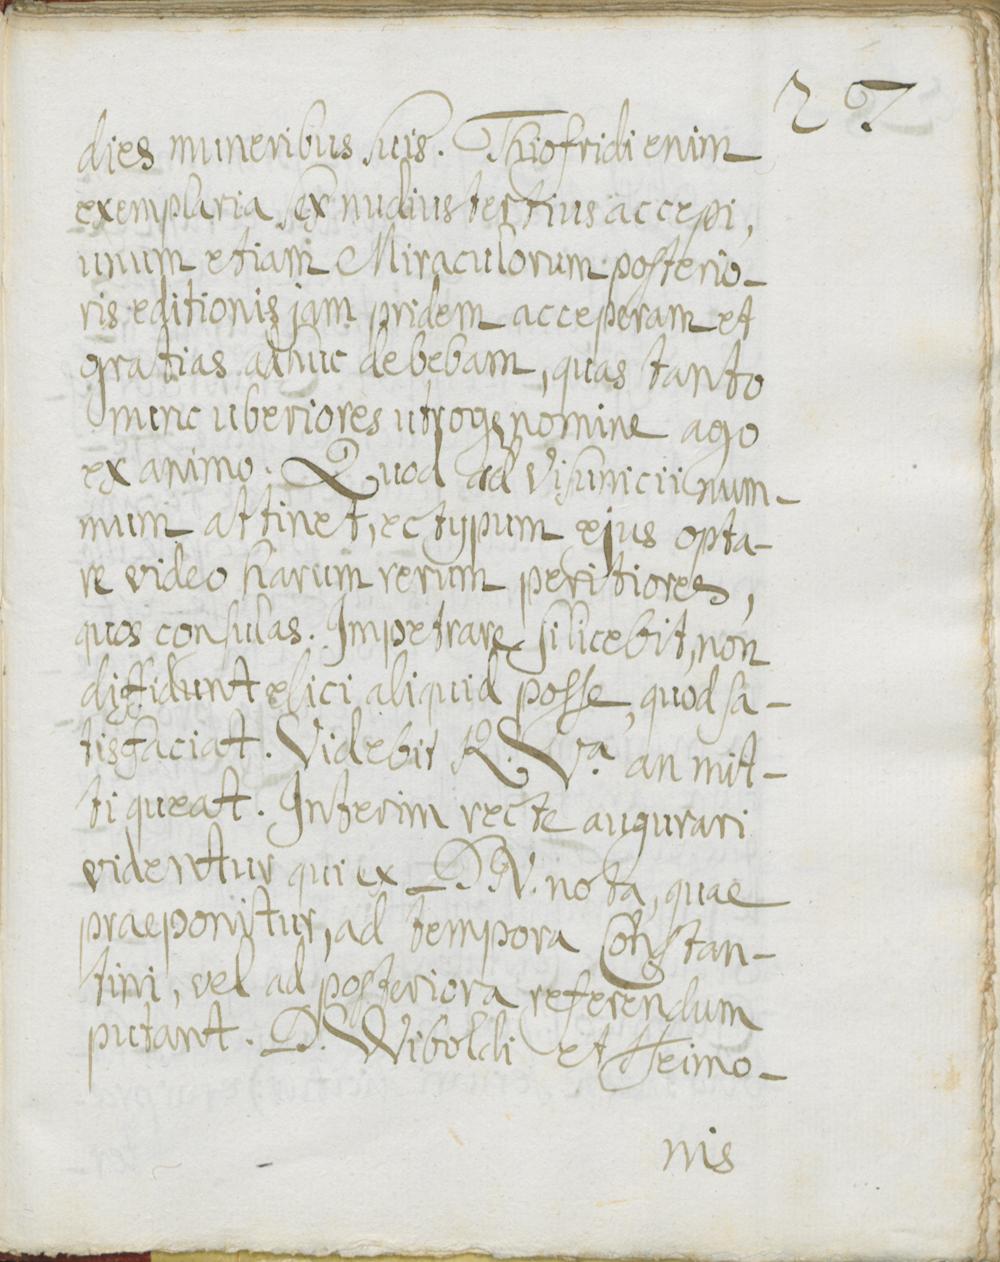 27
dies muneribus suis. Thiofridi enim
exemplaria sex nudius tertius accepi,
unum etiam Miraculorum posterio-
ris editionis jam pridem acceperam et
gratias adhuc debebam, quas tanto
nunc uberiores utroqꝫ nomine ago
ex animo. Quod ad Visuniciinum-
mum attinet, ectypum ejus opta-
re video harum rerum peritiores,
quos consulas. Impetrare si licebit, non
diffidunt elici aliquid posse, quod sa-
tisfaciat. Videbit R. Vª. an mit-
ti queat. Interim recte augurari
videntur qui ex D. N. nota, quae
praeponitur, ad tempora Constan-
tini, vel ad posteriora referendum
putant. D. Wiboldi et Heimo-
nis